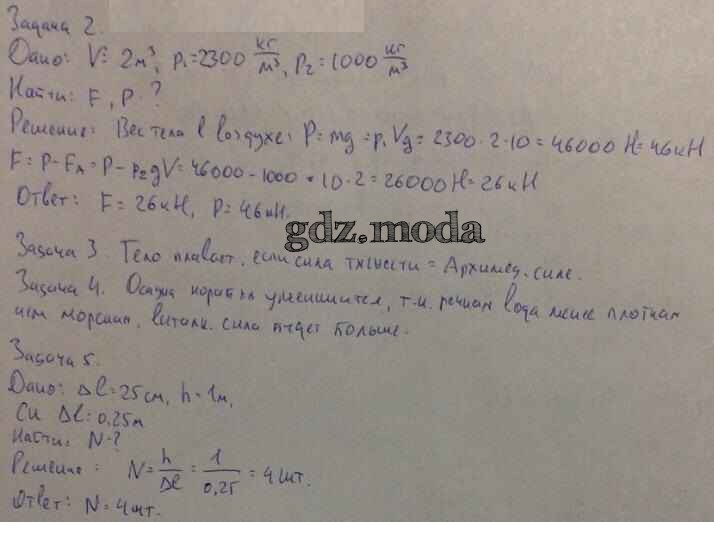 Задача 2.
Дано: V = 2м³, ρ₁ = 2300 кг/м³, ρ₂ = 1000 кг/м³
Найти: F, P - ?
Решение: Вес тела в воздухе: P = mg = ρ₁Vg = 2300 · 2 · 10 = 46000 Н = 46кН
F = P - Fₐ = P - ρ₂gV = 46000 - 1000 · 10 · 2 = 26000Н = 26кН
Ответ: F = 26кН, P = 46кН.
gdz.moda
Задача 3. Тело плавает, если сила тяжести = Архимед. силе.
Задача 4. Осадка корабля уменьшится, т.к. речная вода менее плотная
чем морская, выталк. сила будет больше.
Задача 5.
Дано: Δl = 25см, h = 1м,
Си Δl = 0,25м
Найти: N - ?
Решение: N = h/Δl = 1/0,25 = 4 шт.
Ответ: N = 4шт.